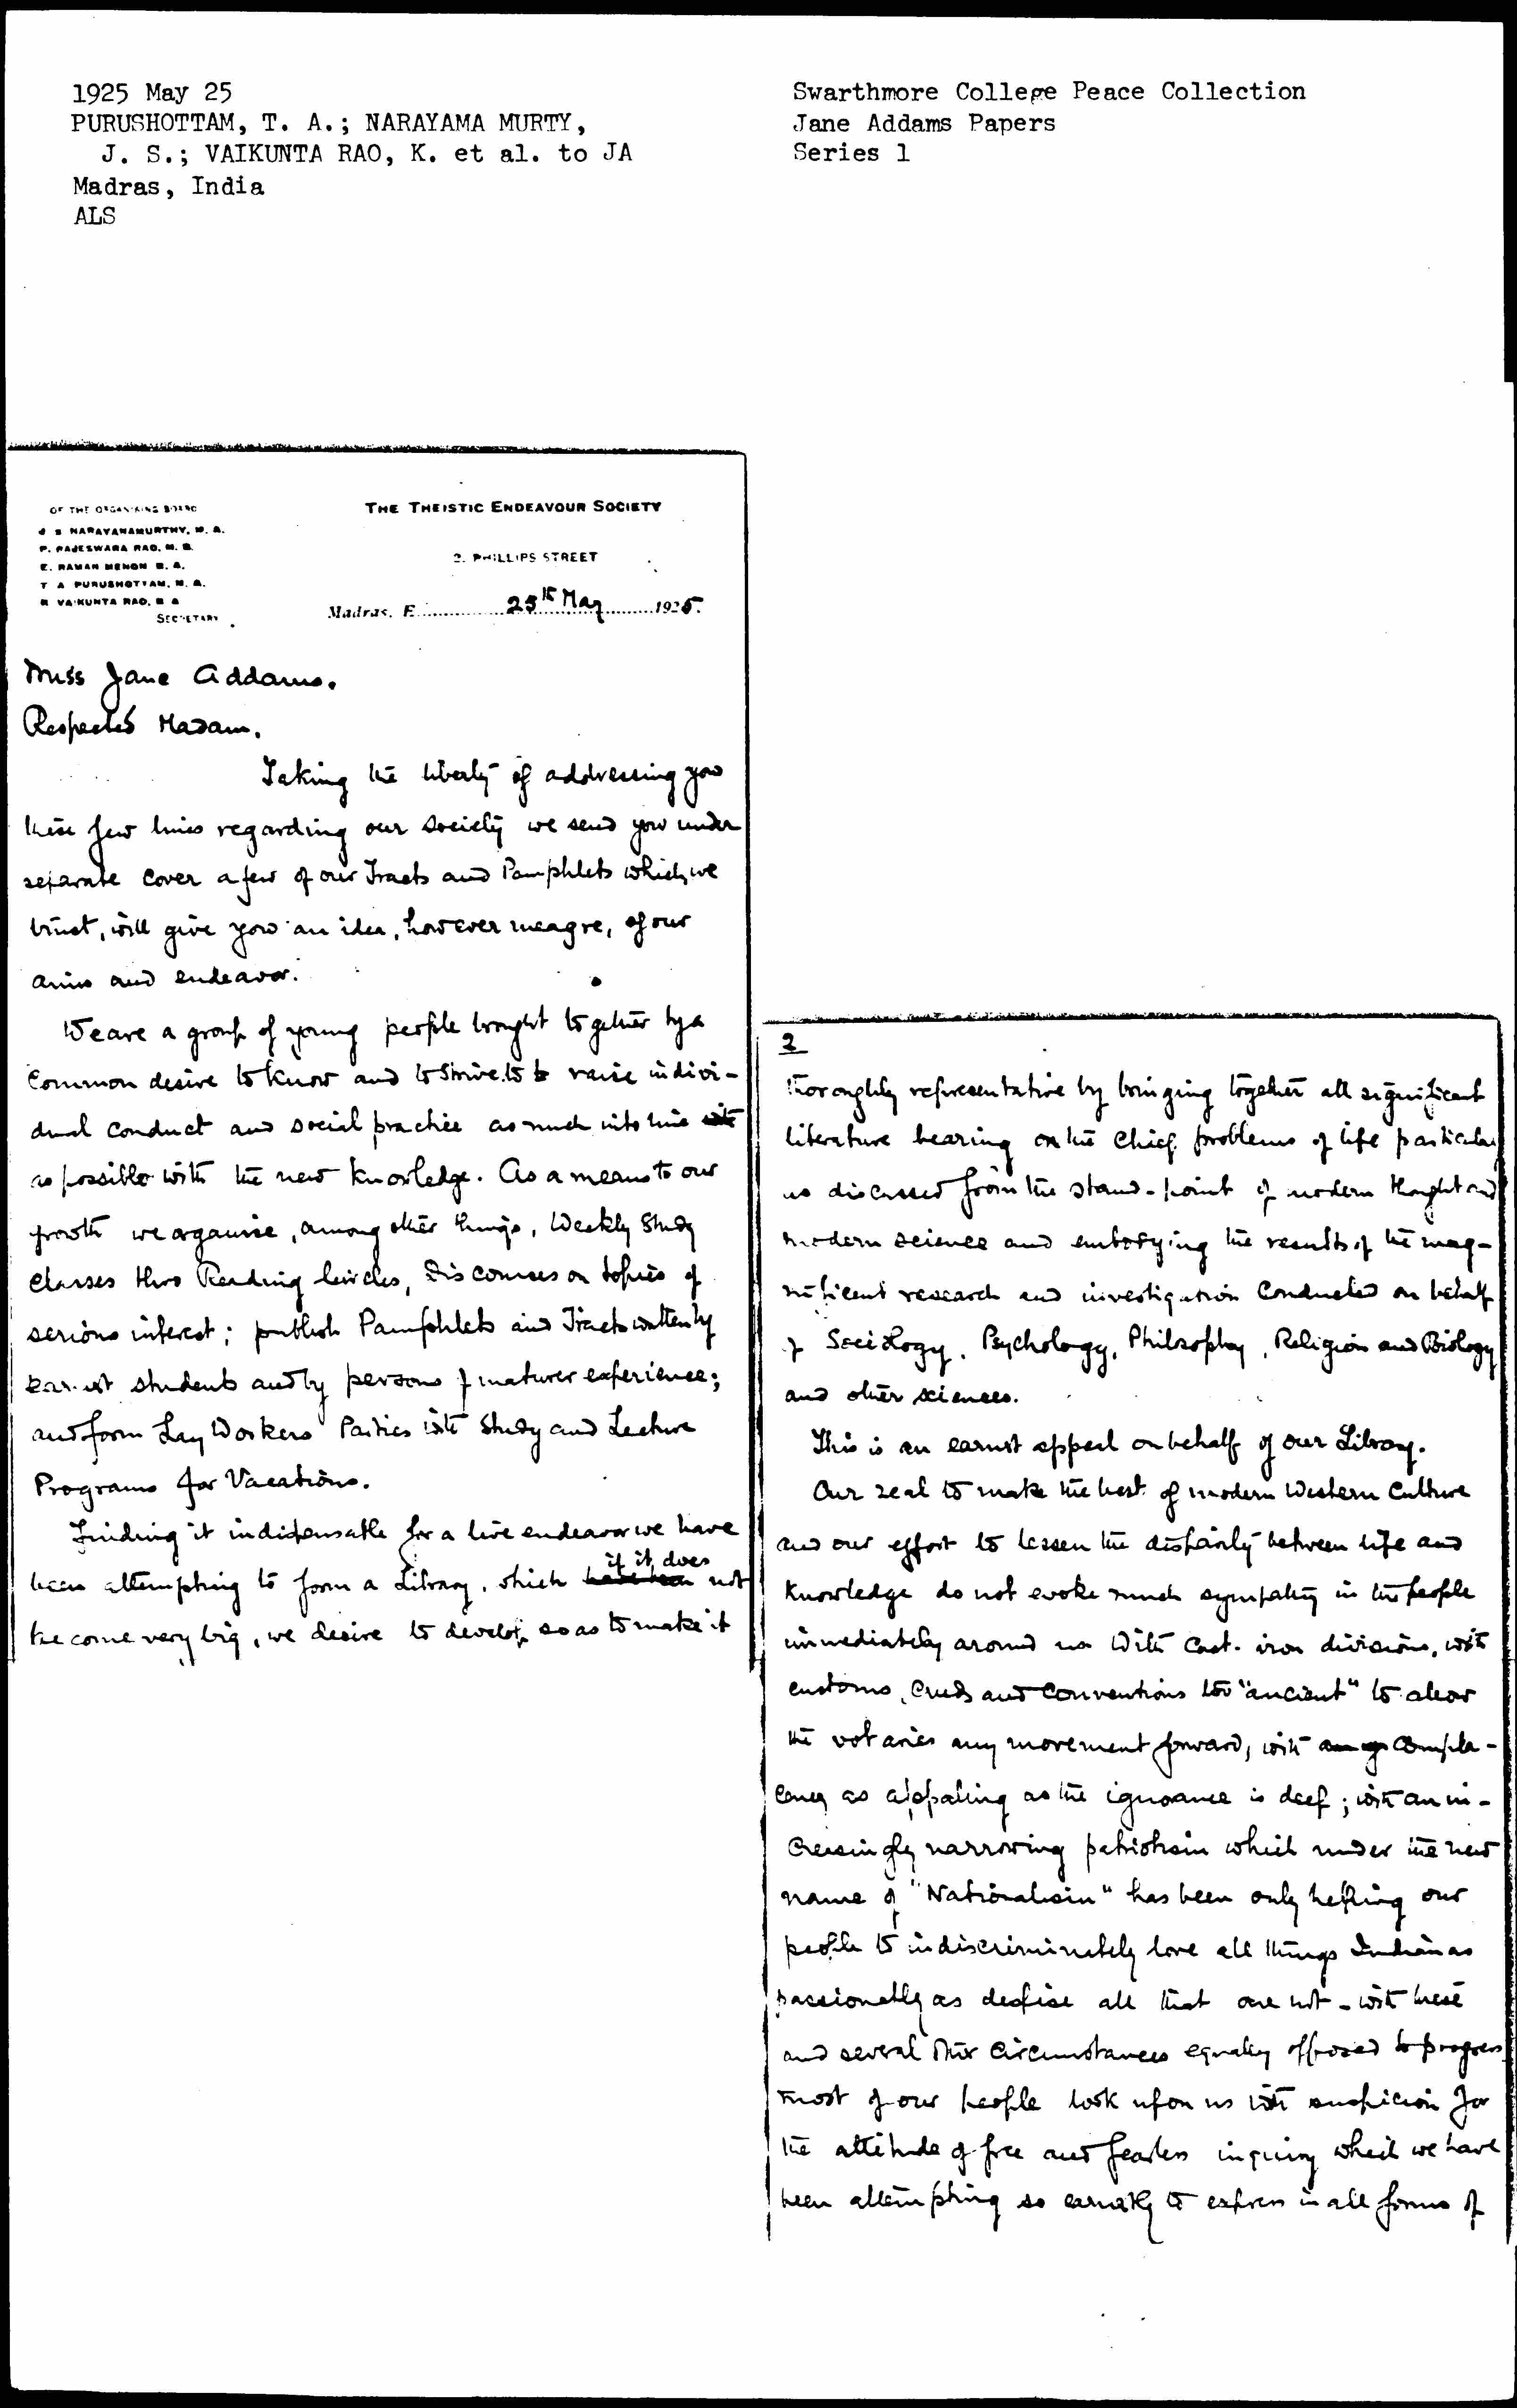 1925 May 25
PURUSHOTTAM, T. A.; NARAYAMA MURTY,
J. S.; VAIKUNTA RAO, K. et al. to JA
Madras, India
ALS
Swarthmore College Peace Collection
Jane Addams Papers
Series 1
OF THE ORGANISING BOARD
J S NARAYANAMURTHY, M. A.
P. RAJESWARA RAO, M. B.
E. RAMAN MENON B. A.
T A PURUSHOTTAM, M. A.
VAIKUNTA RAO, B A
SECRETARY
THE THEISTIC ENDEAVOUR SOCIETY
2. PHILLIPS STREET
Madras, E. 25th May 1925.
Miss Jane Addams.
Respected Madam.
Taking the liberty of addressing you
these few lines regarding our society we send you under
separate cover a few of our Tracts and Pamphlets which, we
trust, will give you an idea, however meagre, of our
aims and endeavor.
We are a group of young people brought together by a
common desire to know and to strive to raise indivi-
dual conduct and social practice as much into line
as possible with the new knowledge. As a means to our
growth we organise, among other things, Weekly Study
Classes thro Reading Circles, Discourses on topics of
serious interest; publish Pamphlets and Tracts written by
earnest students and by persons of maturer experience;
and form Lay Workers' Parties with Study and Lecture
Programs for Vacations.
Finding it indispensable for a live endeavor we have
been attempting to form a Library, which if it does not
become very big, we desire to develop so as to make it
2
thoroughly representative by bringing together all significant
literature bearing on the chief problems of life particularly
as discussed from the stand-point of modern thought and
modern science and embodying the results of the mag-
nificent research and investigation conducted on behalf
of Sociology, Psychology, Philosophy, Religion and Biology
and other sciences.
This is an earnest appeal on behalf of our Library.
Our zeal to make the best of modern Western Culture
and our effort to lessen the disparity between life and
knowledge do not evoke much sympathy in the people
immediately around us With Cast-iron divisions, with
customs, Creeds and Conventions too "ancient" to allow
the votaries any movement forward, with compla-
cency as appaling as the ignorance is deep; with an in-
creasingly narrowing patriotism which under the new
name of "Nationalism" has been only helping our
people to indiscriminately love all things Indian as
passionately as despise all that are not - with these
and several other circumstances equally opposed to progress
most of our people look upon us with suspicion for
the attitude of free and fearless inquiry which we have
been attempting so earnestly to express in all forms of